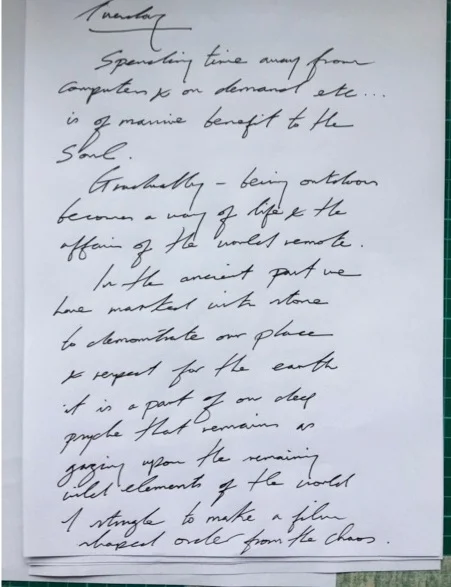 Tuesday
Spending time away from
computers & on demand etc...
is of massive benefit to the
Soul.
Gradually - being outdoors
becomes a way of life & the
affairs of the world remote.
In the ancient past we
have marked with stone
to demonstrate our place
& respect for the earth
it is a part of our deep
psyche that remains as
gazing upon the remaining
wild elements of the world
I struggle to make a film
shaped order from the chaos.